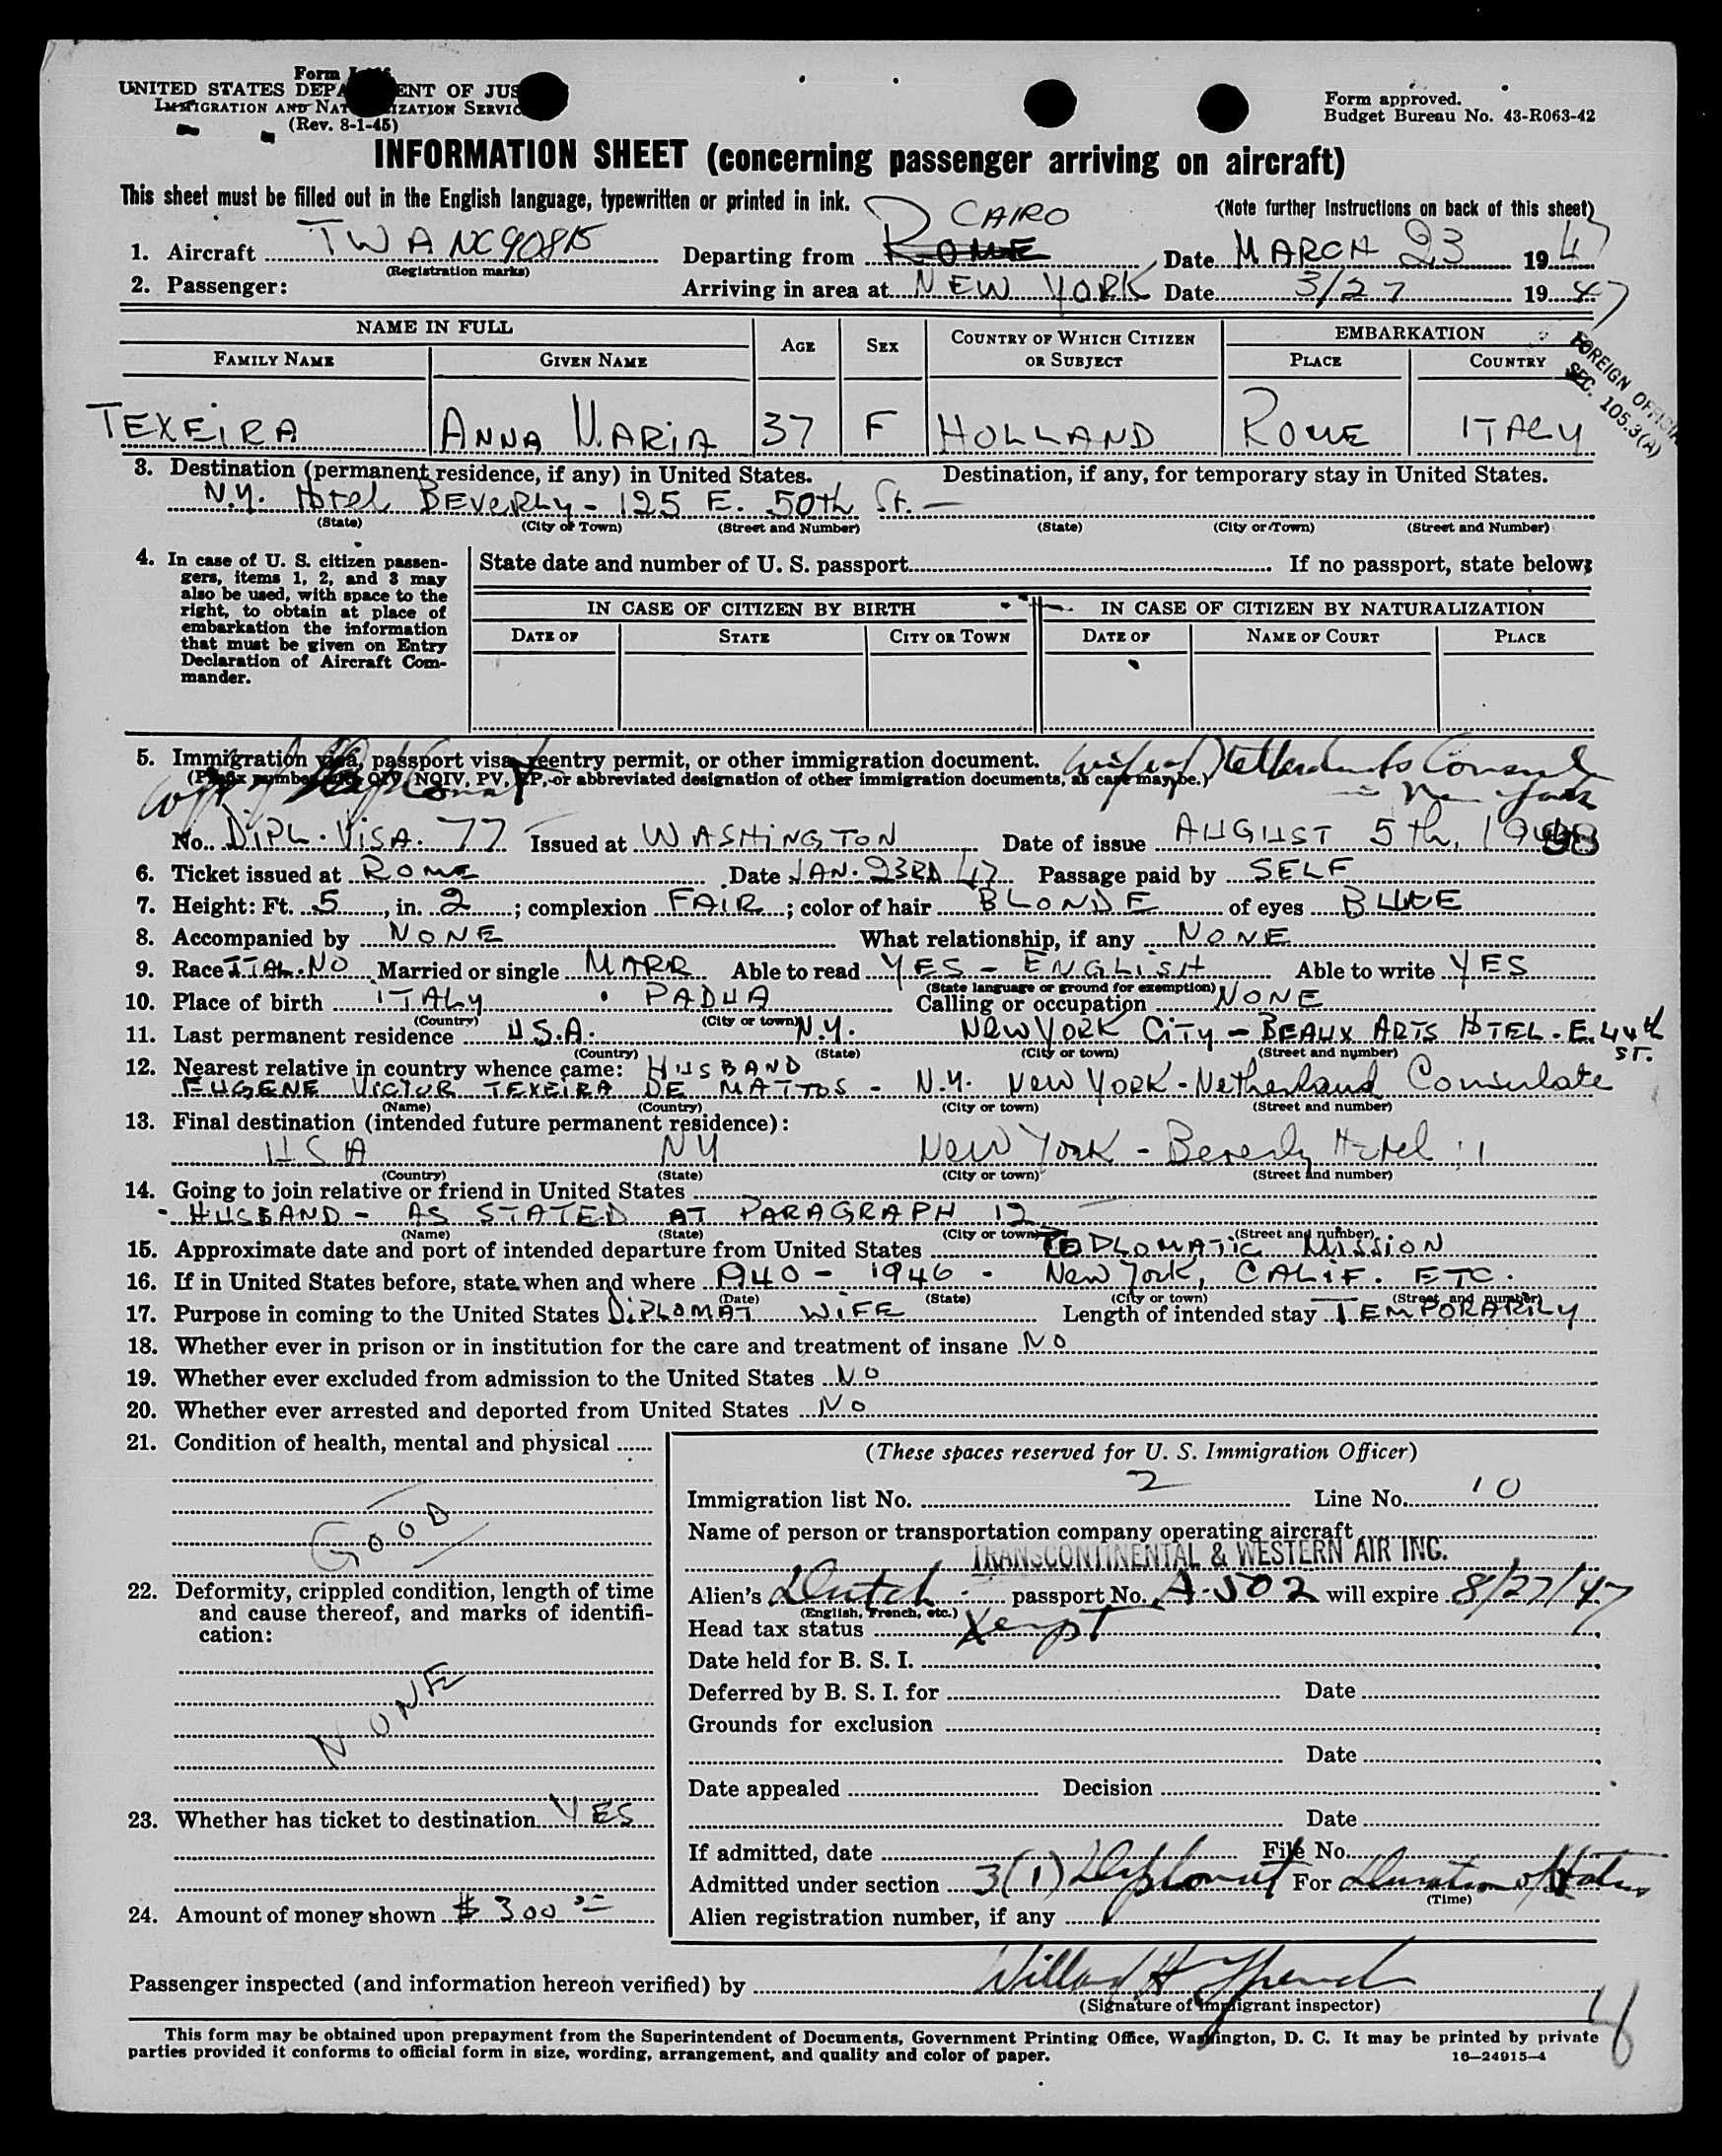 Form
UNITED STATES DEPA ENT OF JUS
IMMIGRATION AND NAT IZATION SERVIC
(Rev. 8-1-45)
Form approved.
Budget Bureau No. 43-R063-42
INFORMATION SHEET (concerning passenger arriving on aircraft)
This sheet must be filled out in the English language, typewritten or printed in ink.
(Note further instructions on back of this sheet)
CAIRO
1. Aircraft TWA NC90815 Departing from ROME Date MARCH 23 1947
(Registration marks)
2. Passenger: Arriving in area at NEW YORK Date 3/27 1947
NAME IN FULL AGE SEX COUNTRY OF WHICH CITIZEN OR SUBJECT EMBARKATION
FAMILY NAME GIVEN NAME PLACE COUNTRY
FOREIGN OFFICIAL
SEC. 105.3(A)
TEXEIRA ANNA MARIA 37 F HOLLAND ROME ITALY
3. Destination (permanent residence, if any) in United States. Destination, if any, for temporary stay in United States.
N.Y. Hotel BEVERLY - 125 E. 50th St. —
(State) (City or Town) (Street and Number) (State) (City or Town) (Street and Number)
4. In case of U. S. citizen passen-
gers, items 1, 2, and 3 may
also be used, with space to the
right, to obtain at place of
embarkation the information
that must be given on Entry
Declaration of Aircraft Com-
mander.
State date and number of U. S. passport If no passport, state below:
IN CASE OF CITIZEN BY BIRTH IN CASE OF CITIZEN BY NATURALIZATION
DATE OF STATE CITY OR TOWN DATE OF NAME OF COURT PLACE
5. Immigration visa, passport visa, reentry permit, or other immigration document. wife of Netherlands Consul
(Prefix number with QIV, NQIV, PV, TP, or abbreviated designation of other immigration documents, as case may be.)
in New York
No. DIPL. VISA. 77 Issued at WASHINGTON Date of issue AUGUST 5th, 1946
6. Ticket issued at ROME Date JAN. 23RD 47 Passage paid by SELF
7. Height: Ft. 5, in. 2; complexion FAIR; color of hair BLONDE of eyes BLUE
8. Accompanied by NONE What relationship, if any NONE
9. Race ITAL. NO Married or single MARR Able to read YES - ENGLISH Able to write YES
(State language or ground for exemption)
10. Place of birth ITALY PADUA Calling or occupation NONE
(Country) (City or town)
11. Last permanent residence U.S.A. N.Y. NEW YORK CITY - BEAUX ARTS HOTEL - E. 44th ST.
(Country) (State) (City or town) (Street and number)
12. Nearest relative in country whence came: HUSBAND
EUGENE VICTOR TEXEIRA DE MATTOS - N.Y. NEW YORK - Netherland Consulate
(Name) (Country) (City or town) (Street and number)
13. Final destination (intended future permanent residence):
USA NY New York - Beverly Hotel
(Country) (State) (City or town) (Street and number)
14. Going to join relative or friend in United States
HUSBAND - AS STATED AT PARAGRAPH 12
(Name) (State) (City or town) (Street and number)
15. Approximate date and port of intended departure from United States DPLOMATIC MISSION
16. If in United States before, state when and where 1940 - 1946 - New York, CALIF. ETC.
(Date) (State) (City or town) (Street and number)
17. Purpose in coming to the United States DIPLOMAT WIFE Length of intended stay TEMPORARILY
18. Whether ever in prison or in institution for the care and treatment of insane NO
19. Whether ever excluded from admission to the United States NO
20. Whether ever arrested and deported from United States NO
21. Condition of health, mental and physical
GOOD
22. Deformity, crippled condition, length of time
and cause thereof, and marks of identifi-
cation:
NONE
23. Whether has ticket to destination YES
24. Amount of money shown $ 300
(These spaces reserved for U. S. Immigration Officer)
Immigration list No. 2 Line No. 10
Name of person or transportation company operating aircraft
TRANSCONTINENTAL & WESTERN AIR INC.
Alien's Dutch passport No. A-502 will expire 8/27/47
(English, French, etc.)
Head tax status Xempt
Date held for B. S. I.
Deferred by B. S. I. for Date
Grounds for exclusion
Date
Date appealed Decision
Date
If admitted, date File No.
Admitted under section 3(1) Diplomat For Duration of Status
(Time)
Alien registration number, if any
Passenger inspected (and information hereon verified) by Willard H French
(Signature of immigrant inspector)
4
This form may be obtained upon prepayment from the Superintendent of Documents, Government Printing Office, Washington, D. C. It may be printed by private
parties provided it conforms to official form in size, wording, arrangement, and quality and color of paper.
16—24915-4